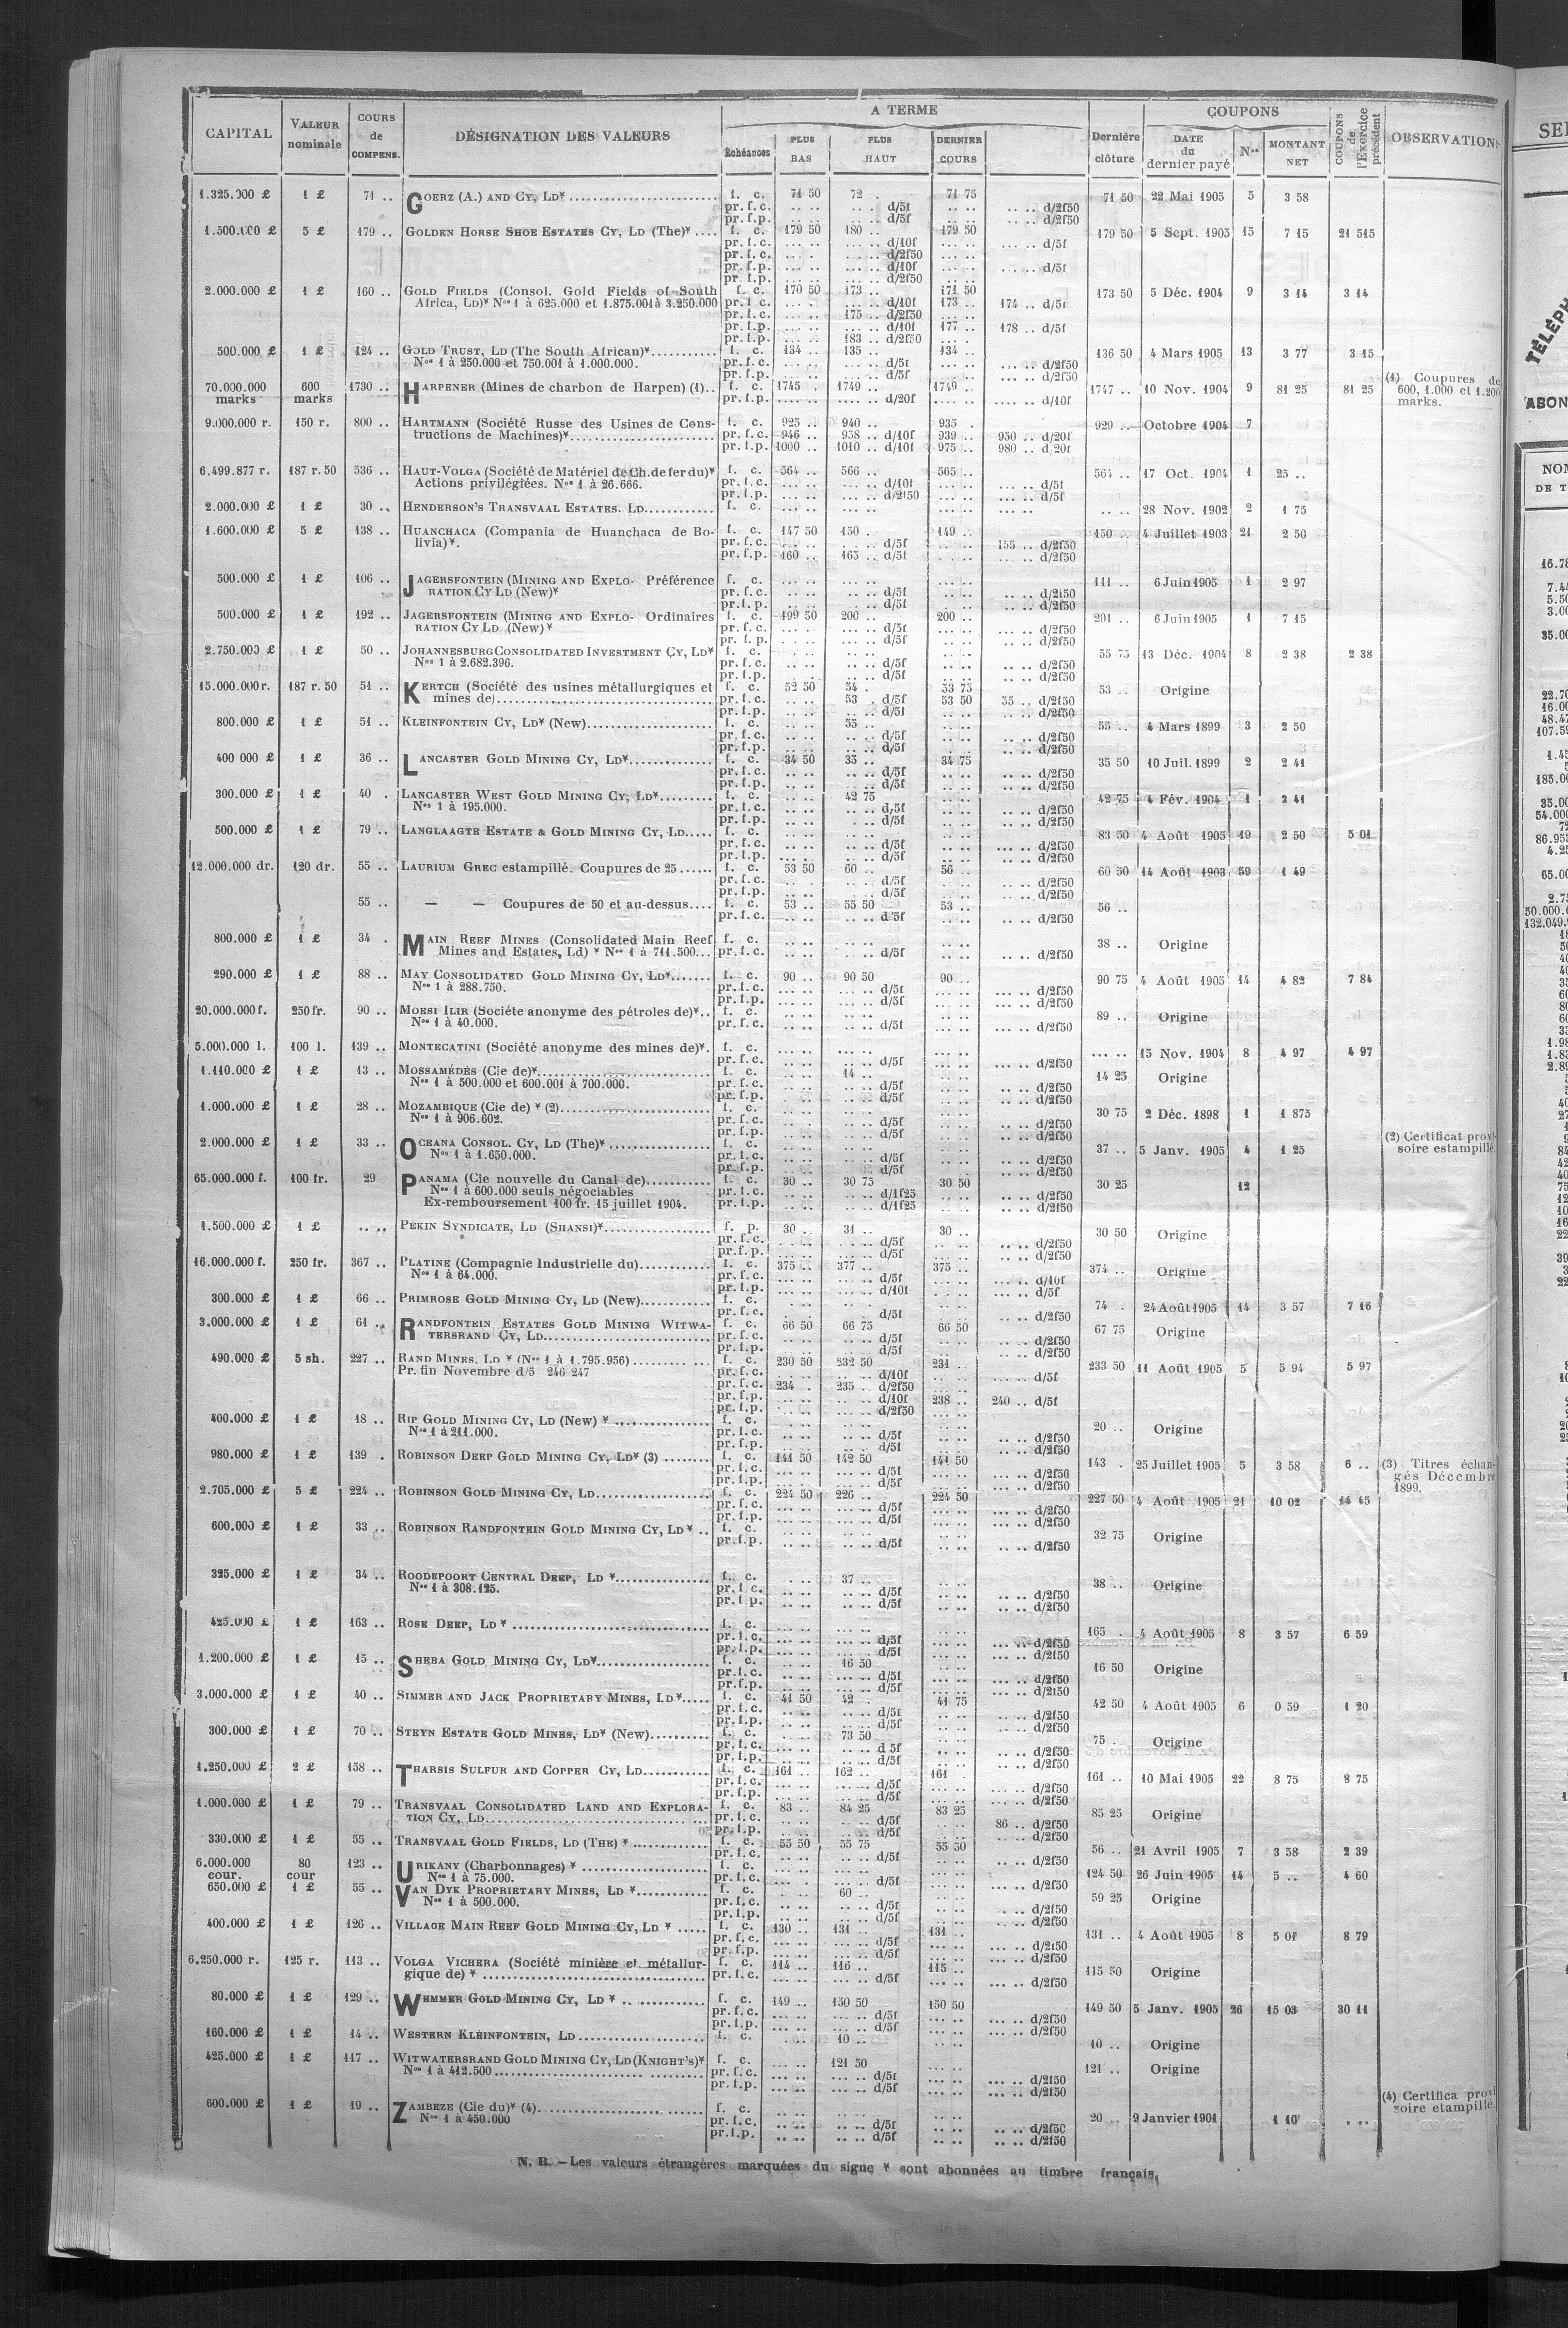 CAPITAL | VALEUR nominale | COURS de COMPENS. | DÉSIGNATION DES VALEURS | A TERME | Échéances | PLUS BAS | PLUS HAUT | DERNIER COURS | Dernière clôture | COUPONS | DATE du dernier payé | Nos | MONTANT NET | COUPONS de l'Exercice précédent | OBSERVATIONS
1.325.000 £ | 1 £ | 71 .. | GOERZ (A.) AND CY, LD* | f. c. | 71 50 | 72 .. | 71 75 | 71 50 | 22 Mai 1905 | 5 | 3 58
pr. f. c. | d/5f | d/2f50
pr. f. p. | d/5f | d/2f50
1.500.000 £ | 5 £ | 179 .. | GOLDEN HORSE SHOE ESTATES CY, LD (The)* | f. c. | 179 50 | 180 .. | 179 50 | 179 50 | 5 Sept. 1905 | 15 | 7 15 | 21 515
pr. f. c. | d/10f | d/5f
pr. f. c. | d/2f50
pr. f. p. | d/10f | d/5f
pr. f. p. | d/2f50
2.000.000 £ | 1 £ | 160 .. | GOLD FIELDS (Consol. Gold Fields of South | f. c. | 170 50 | 173 .. | 171 50 | 173 50 | 5 Déc. 1904 | 9 | 3 14 | 3 14
Africa, Ld)* Nos 1 à 625.000 et 1.875.001 à 3.250.000 | pr. f. c. | d/10f | 173 .. | 174 .. d/5f
pr. f. c. | 175 .. d/2f50
pr. f. p. | d/10f | 177 .. | 178 .. d/5f
pr. f. p. | 183 .. d/2f50
500.000 £ | 1 £ | 124 .. | GOLD TRUST, LD (The South African)* | f. c. | 134 .. | 135 .. | 134 .. | 136 50 | 4 Mars 1905 | 13 | 3 77 | 3 15
Nos 1 à 250.000 et 750.001 à 1.000.000. | pr. f. c. | d/5f | d/2f50
pr. f. p. | d/5f | d/2f50
70.000.000 marks | 600 marks | 1730 .. | HARPENER (Mines de charbon de Harpen) (1).. | f. c. | 1745 . | 1749 .. | 1749 .. | 1747 .. | 10 Nov. 1904 | 9 | 81 25 | 81 25 | (1) Coupures de 600, 1.000 et 1.200 marks.
pr. f. p. | d/20f | d/10f
9.000.000 r. | 150 r. | 800 .. | HARTMANN (Société Russe des Usines de Cons- | f. c. | 925 .. | 940 .. | 935 . | 929 .. | Octobre 1904 | 7
tructions de Machines)* | pr. f. c. | 946 .. | 958 .. d/10f | 939 .. | 950 .. d/20f
pr. f. p. | 1000 .. | 1010 .. d/10f | 975 .. | 980 .. d/20f
6.499.877 r. | 187 r. 50 | 536 .. | HAUT-VOLGA (Société de Matériel de Ch. de fer du)* | f. c. | 564 .. | 566 .. | 565 .. | 564 .. | 17 Oct. 1904 | 1 | 25 ..
Actions privilégiées. Nos 1 à 26.666. | pr. f. c. | d/10f | d/5f
pr. f. p. | d/2f50 | d/5f
2.000.000 £ | 1 £ | 30 .. | HENDERSON'S TRANSVAAL ESTATES. LD | f. c. | 28 Nov. 1902 | 2 | 1 75
1.600.000 £ | 5 £ | 138 .. | HUANCHACA (Compania de Huanchaca de Bo- | f. c. | 147 50 | 150 . | 149 .. | 150 .. | 4 Juillet 1903 | 21 | 2 50
livia)*. | pr. f. c. | d/5f | 155 .. d/2f50
pr. f. p. | 160 .. | 165 .. d/5f | d/2f50
500.000 £ | 1 £ | 106 .. | JAGERSFONTEIN (MINING AND EXPLO- Préférence | f. c. | 111 .. | 6 Juin 1905 | 1 | 2 97
RATION CY LD (New)* | pr. f. c. | d/5f | d/2f50
pr. f. p. | d/5f | d/2f50
500.000 £ | 1 £ | 192 .. | JAGERSFONTEIN (MINING AND EXPLO- Ordinaires | f. c. | 199 50 | 200 .. | 200 .. | 201 .. | 6 Juin 1905 | 1 | 7 15
RATION CY LD (New)* | pr. f. c. | d/5f | d/2f50
pr. f. p. | d/5f | d/2f50
2.750.000 £ | 1 £ | 50 .. | JOHANNESBURG CONSOLIDATED INVESTMENT CY, LD* | f. c. | 55 75 | 13 Déc. 1904 | 8 | 2 38 | 2 38
Nos 1 à 2.682.396. | pr. f. c. | d/5f | d/2f50
pr. f. p. | d/5f | d/2f50
15.000.000 r. | 187 r. 50 | 51 .. | KERTCH (Société des usines métallurgiques et | f. c. | 52 50 | 54 . | 53 75 | 53 .. | Origine
mines de) | pr. f. c. | 53 . d/5f | 53 50 | 55 .. d/2f50
pr. f. p. | d/5f | d/2f50
800.000 £ | 1 £ | 51 .. | KLEINFONTEIN CY, LD* (New) | f. c. | 55 .. | 55 .. | 4 Mars 1899 | 3 | 2 50
pr. f. c. | d/5f | d/2f50
pr. f. p. | d/5f | d/2f50
400 000 £ | 1 £ | 36 .. | LANCASTER GOLD MINING CY, LD* | f. c. | 34 50 | 35 .. | 34 75 | 35 50 | 10 Juil. 1899 | 2 | 2 41
pr. f. c. | d/5f | d/2f50
pr. f. p. | d/5f | d/2f50
300.000 £ | 1 £ | 40 . | LANCASTER WEST GOLD MINING CY, LD* | f. c. | 42 75 | 42 75 | 4 Fév. 1904 | 1 | 2 41
Nos 1 à 195.000. | pr. f. c. | d/5f | d/2f50
pr. f. p. | d/5f | d/2f50
500.000 £ | 1 £ | 79 .. | LANGLAAGTE ESTATE & GOLD MINING CY, LD | f. c. | 83 50 | 4 Août 1905 | 19 | 2 50 | 5 01
pr. f. c. | d/5f | d/2f50
pr. f. p. | d/5f | d/2f50
12.000.000 dr. | 120 dr. | 55 .. | LAURIUM GREC estampillé. Coupures de 25 | f. c. | 53 50 | 60 .. | 56 .. | 60 50 | 14 Août 1903 | 59 | 1 49
pr. f. c. | d/5f | d/2f50
pr. f. p. | d/5f | d/2f50
55 .. | — — Coupures de 50 et au-dessus | f. c. | 53 .. | 55 50 | 53 .. | 56 ..
pr. f. c. | d/5f | d/2f50
800.000 £ | 1 £ | 34 . | MAIN REEF MINES (Consolidated Main Reef | f. c. | 38 .. | Origine
Mines and Estates, Ld) * Nos 1 à 711.500... | pr. f. c. | d/5f | d/2f50
290.000 £ | 1 £ | 88 .. | MAY CONSOLIDATED GOLD MINING CY, LD* | f. c. | 90 .. | 90 50 | 90 .. | 90 75 | 4 Août 1905 | 14 | 4 82 | 7 84
Nos 1 à 288.750. | pr. f. c. | d/5f | d/2f50
pr. f. p. | d/5f | d/2f50
20.000.000 f. | 250 fr. | 90 .. | MOESI ILIR (Société anonyme des pétroles de)*.. | f. c. | 89 .. | Origine
Nos 1 à 40.000. | pr. f. c. | d/5f | d/2f50
5.000.000 l. | 100 l. | 139 .. | MONTECATINI (Société anonyme des mines de)*. | f. c. | 15 Nov. 1904 | 8 | 4 97 | 4 97
pr. f. c. | d/5f | d/2f50
1.110.000 £ | 1 £ | 13 .. | MOSSAMÉDÈS (Cie de)* | f. c. | 14 .. | 14 25 | Origine
Nos 1 à 500.000 et 600.001 à 700.000. | pr. f. c. | d/5f | d/2f50
pr. f. p. | d/5f | d/2f50
1.000.000 £ | 1 £ | 28 .. | MOZAMBIQUE (Cie de) * (2) | f. c. | 30 75 | 2 Déc. 1898 | 1 | 1 875
Nos 1 à 906.602. | pr. f. c. | d/5f | d/2f50
pr. f. p. | d/5f | d/2f50
2.000.000 £ | 1 £ | 33 .. | OCEANA CONSOL. CY, LD (The)* | f. c. | 37 .. | 5 Janv. 1905 | 4 | 1 25 | (2) Certificat provi- soire estampillé.
Nos 1 à 1.650.000. | pr. f. c. | d/5f | d/2f50
pr. f. p. | d/5f | d/2f50
65.000.000 f. | 100 fr. | 29 | PANAMA (Cie nouvelle du Canal de) | f. c. | 30 .. | 30 75 | 30 50 | 30 25 | 12
Nos 1 à 600.000 seuls négociables | pr. f. c. | d/1f25 | d/2f50
Ex-remboursement 100 fr. 15 juillet 1904. | pr. f. p. | d/1f25 | d/2f50
1.500.000 £ | 1 £ | .. .. | PEKIN SYNDICATE, LD (SHANSI)* | f. p. | 30 .. | 31 .. | 30 .. | 30 50 | Origine
pr. f. c. | d/5f | d/2f50
pr. f. p. | d/5f | d/2f50
16.000.000 f. | 250 fr. | 367 .. | PLATINE (Compagnie Industrielle du) | f. c. | 375 .. | 377 .. | 375 .. | 374 .. | Origine
Nos 1 à 64.000. | pr. f. c. | d/5f | d/10f
pr. f. p. | d/10f | d/5f
300.000 £ | 1 £ | 66 .. | PRIMROSE GOLD MINING CY, LD (New) | f. c. | 74 . | 24 Août 1905 | 14 | 3 57 | 7 16
pr. f. c. | d/5f | d/2f50
3.000.000 £ | 1 £ | 61 .. | RANDFONTEIN ESTATES GOLD MINING WITWA- | f. c. | 66 50 | 66 75 | 66 50 | 67 75 | Origine
TERSRAND CY, LD | pr. f. c. | d/5f | d/2f50
pr. f. p. | d/5f | d/2f50
490.000 £ | 5 sh. | 227 .. | RAND MINES, LD * (Nos 1 à 1.795.956) | f. c. | 230 50 | 232 50 | 231 .. | 233 50 | 11 Août 1905 | 5 | 5 94 | 5 97
Pr. fin Novembre d/5 246 247 | pr. f. c. | d/10f | d/5f
pr. f. c. | 234 .. | 235 .. d/2f50
pr. f. p. | d/10f | 238 .. | 240 .. d/5f
pr. f. p. | d/2f50
400.000 £ | 1 £ | 18 .. | RIP GOLD MINING CY, LD (New) * | f. c. | 20 .. | Origine
Nos 1 à 211.000. | pr. f. c. | d/5f | d/2f50
pr. f. p. | d/5f | d/2f50
980.000 £ | 1 £ | 139 . | ROBINSON DEEP GOLD MINING CY, LD* (3) | f. c. | 141 50 | 142 50 | 141 50 | 143 . | 25 Juillet 1905 | 5 | 3 58 | 6 .. | (3) Titres échan- gés Décembre 1899.
pr. f. c. | d/5f | d/2f50
pr. f. p. | d/5f | d/2f50
2.705.000 £ | 5 £ | 224 .. | ROBINSON GOLD MINING CY, LD | f. c. | 224 50 | 226 .. | 224 50 | 227 50 | 4 Août 1905 | 21 | 10 02 | 14 45
pr. f. c. | d/5f | d/2f50
pr. f. p. | d/5f | d/2f50
600.000 £ | 1 £ | 33 .. | ROBINSON RANDFONTEIN GOLD MINING CY, LD* .. | f. c. | 32 75 | Origine
pr. f. p. | d/5f | d/2f50
325.000 £ | 1 £ | 34 .. | ROODEPOORT CENTRAL DEEP, LD * | f. c. | 37 .. | 38 .. | Origine
Nos 1 à 308.125. | pr. f. c. | d/5f | d/2f50
pr. f. p. | d/5f | d/2f50
425.000 £ | 1 £ | 163 .. | ROSE DEEP, LD * | f. c. | 165 . | 4 Août 1905 | 8 | 3 57 | 6 59
pr. f. c. | d/5f | d/2f50
pr. f. p. | d/5f | d/2f50
1.200.000 £ | 1 £ | 15 .. | SHEBA GOLD MINING CY, LD* | f. c. | 16 50 | 16 50 | Origine
pr. f. c. | d/5f | d/2f50
pr. f. p. | d/5f | d/2f50
3.000.000 £ | 1 £ | 40 .. | SIMMER AND JACK PROPRIETARY MINES, LD* | f. c. | 41 50 | 42 . | 41 75 | 42 50 | 4 Août 1905 | 6 | 0 59 | 1 20
pr. f. c. | d/5f | d/2f50
pr. f. p. | d/5f | d/2f50
300.000 £ | 1 £ | 70 .. | STEYN ESTATE GOLD MINES, LD* (New) | f. c. | 73 50 | 75 . | Origine
pr. f. c. | d 5f | d/2f50
pr. f. p. | d/5f | d/2f50
1.250.000 £ | 2 £ | 158 .. | THARSIS SULFUR AND COPPER CY, LD | f. c. | 161 .. | 162 .. | 161 | 161 .. | 10 Mai 1905 | 22 | 8 75 | 8 75
pr. f. c. | d/5f | d/2f50
pr. f. p. | d/5f | d/2f50
1.000.000 £ | 1 £ | 79 .. | TRANSVAAL CONSOLIDATED LAND AND EXPLORA- | f. c. | 83 .. | 84 25 | 83 25 | 85 25 | Origine
TION CY, LD | pr. f. c. | d/5f | 86 .. d/2f50
pr. f. p. | d/5f | d/2f50
330.000 £ | 1 £ | 55 .. | TRANSVAAL GOLD FIELDS, LD (THE) * | f. c. | 55 50 | 55 75 | 55 50 | 56 .. | 21 Avril 1905 | 7 | 3 58 | 2 39
pr. f. c. | d/5f | d/2f50
6.000.000 cour. | 80 cour | 123 .. | URIKANY (Charbonnages) * | f. c. | 124 50 | 26 Juin 1905 | 14 | 5 .. | 4 60
Nos 1 à 75.000. | pr. f. c. | d/5f | d/2f50
650.000 £ | 1 £ | 55 .. | VAN DYK PROPRIETARY MINES, LD * | f. c. | 60 .. | 59 25 | Origine
Nos 1 à 500.000. | pr. f. c. | d/5f | d/2f50
pr. f. p. | d/5f | d/2f50
400.000 £ | 1 £ | 126 .. | VILLAGE MAIN REEF GOLD MINING CY, LD * | f. c. | 130 .. | 131 .. | 131 .. | 131 .. | 4 Août 1905 | 8 | 5 01 | 8 79
pr. f. c. | d/5f | d/2f50
pr. f. p. | d/5f | d/2f50
6.250.000 r. | 125 r. | 113 .. | VOLGA VICHERA (Société minière et métallur- | f. c. | 114 .. | 116 .. | 115 .. | 115 50 | Origine
gique de) * | pr. f. c. | d/5f | d/2f50
80.000 £ | 1 £ | 129 .. | WEMMER GOLD MINING CY, LD * | f. c. | 149 .. | 150 50 | 150 50 | 149 50 | 5 Janv. 1905 | 26 | 15 03 | 30 11
pr. f. c. | d/5f | d/2f50
pr. f. p. | d/5f | d/2f50
160.000 £ | 1 £ | 14 .. | WESTERN KLEINFONTEIN, LD | f. c. | 10 .. | 10 .. | Origine
425.000 £ | 1 £ | 117 .. | WITWATERSRAND GOLD MINING CY, LD (KNIGHT'S)* | f. c. | 121 50 | 121 .. | Origine
Nos 1 à 412.500 | pr. f. c. | d/5f | d/2f50
pr. f. p. | d/5f | d/2f50
600.000 £ | 1 £ | 19 .. | ZAMBEZE (Cie du)* (4) | f. c. | 20 .. | 9 Janvier 1901 | 1 10 | (4) Certifica provi- soire etampillé.
Nos 1 à 450.000 | pr. f. c. | d/5f | d/2f50
pr. f. p. | d/5f | d/2f50
N. B. — Les valeurs étrangères marquées du signe * sont abonnées au timbre français.
TÉLÉPH
ABON
DE T